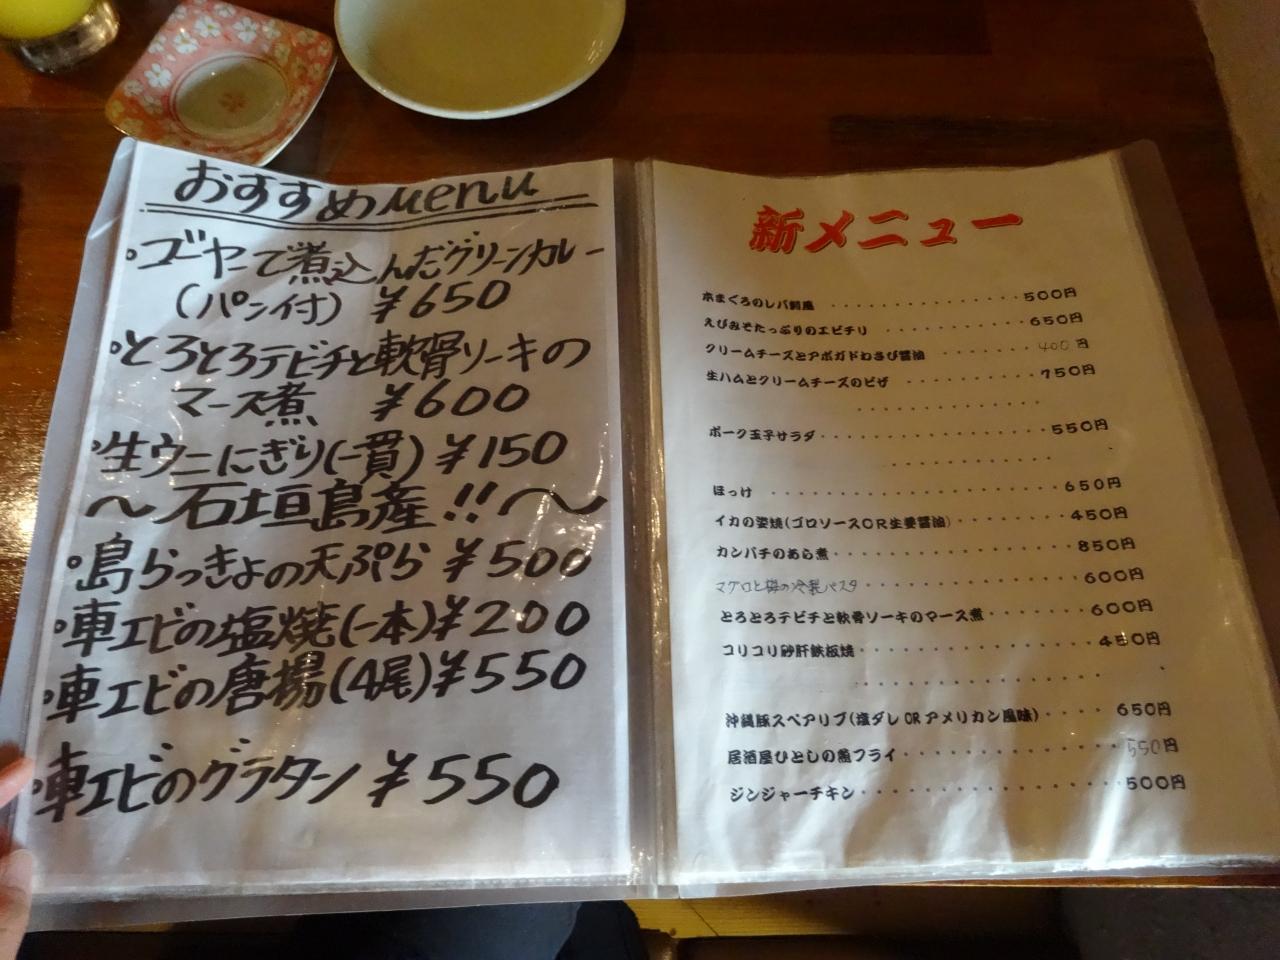 おすすめMenu
・ゴーヤーで煮込んだグリーンカレー
(パン付) ¥650
・とろとろテビチと軟骨ソーキの
マース煮 ¥600
・生ウニにぎり(一貫) ¥150
〜石垣島産!!〜
・島らっきょの天ぷら ¥500
・車エビの塩焼(一本)¥200
・車エビの唐揚(4尾)¥550
・車エビのグラタン ¥550
新メニュー
本まぐろのレバ刺風 ・・・・・・・・・・・・・・・500円
えびみそたっぷりのエビチリ ・・・・・・・・・・650円
クリームチーズとアボガドわさび醤油 ・・・・・・・400円
生ハムとクリームチーズのピザ ・・・・・・・・・750円
ポーク玉子サラダ・・・・・・・・・・・・・・・550円
ほっけ ・・・・・・・・・・・・・・・・・・・650円
イカの姿焼(ゴロソースOR生姜醤油)・・・・・・・・450円
カンパチのあら煮・・・・・・・・・・・・・・・・850円
マグロと梅の冷製パスタ・・・・・・・・・・・・・600円
とろとろテビチと軟骨ソーキのマース煮・・・・・・600円
コリコリ砂肝鉄板焼・・・・・・・・・・・・・・450円
沖縄豚スペアリブ(塩ダレ OR アメリカン風味)・・・・650円
居酒屋ひとしの魚フライ・・・・・・・・・・・・550円
ジンジャーチキン・・・・・・・・・・・・・・・500円